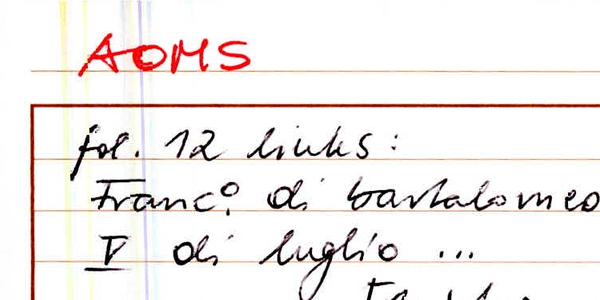 AOMS
fol. 12 links:
Franc.º di bartalomeo
V di luglio ...